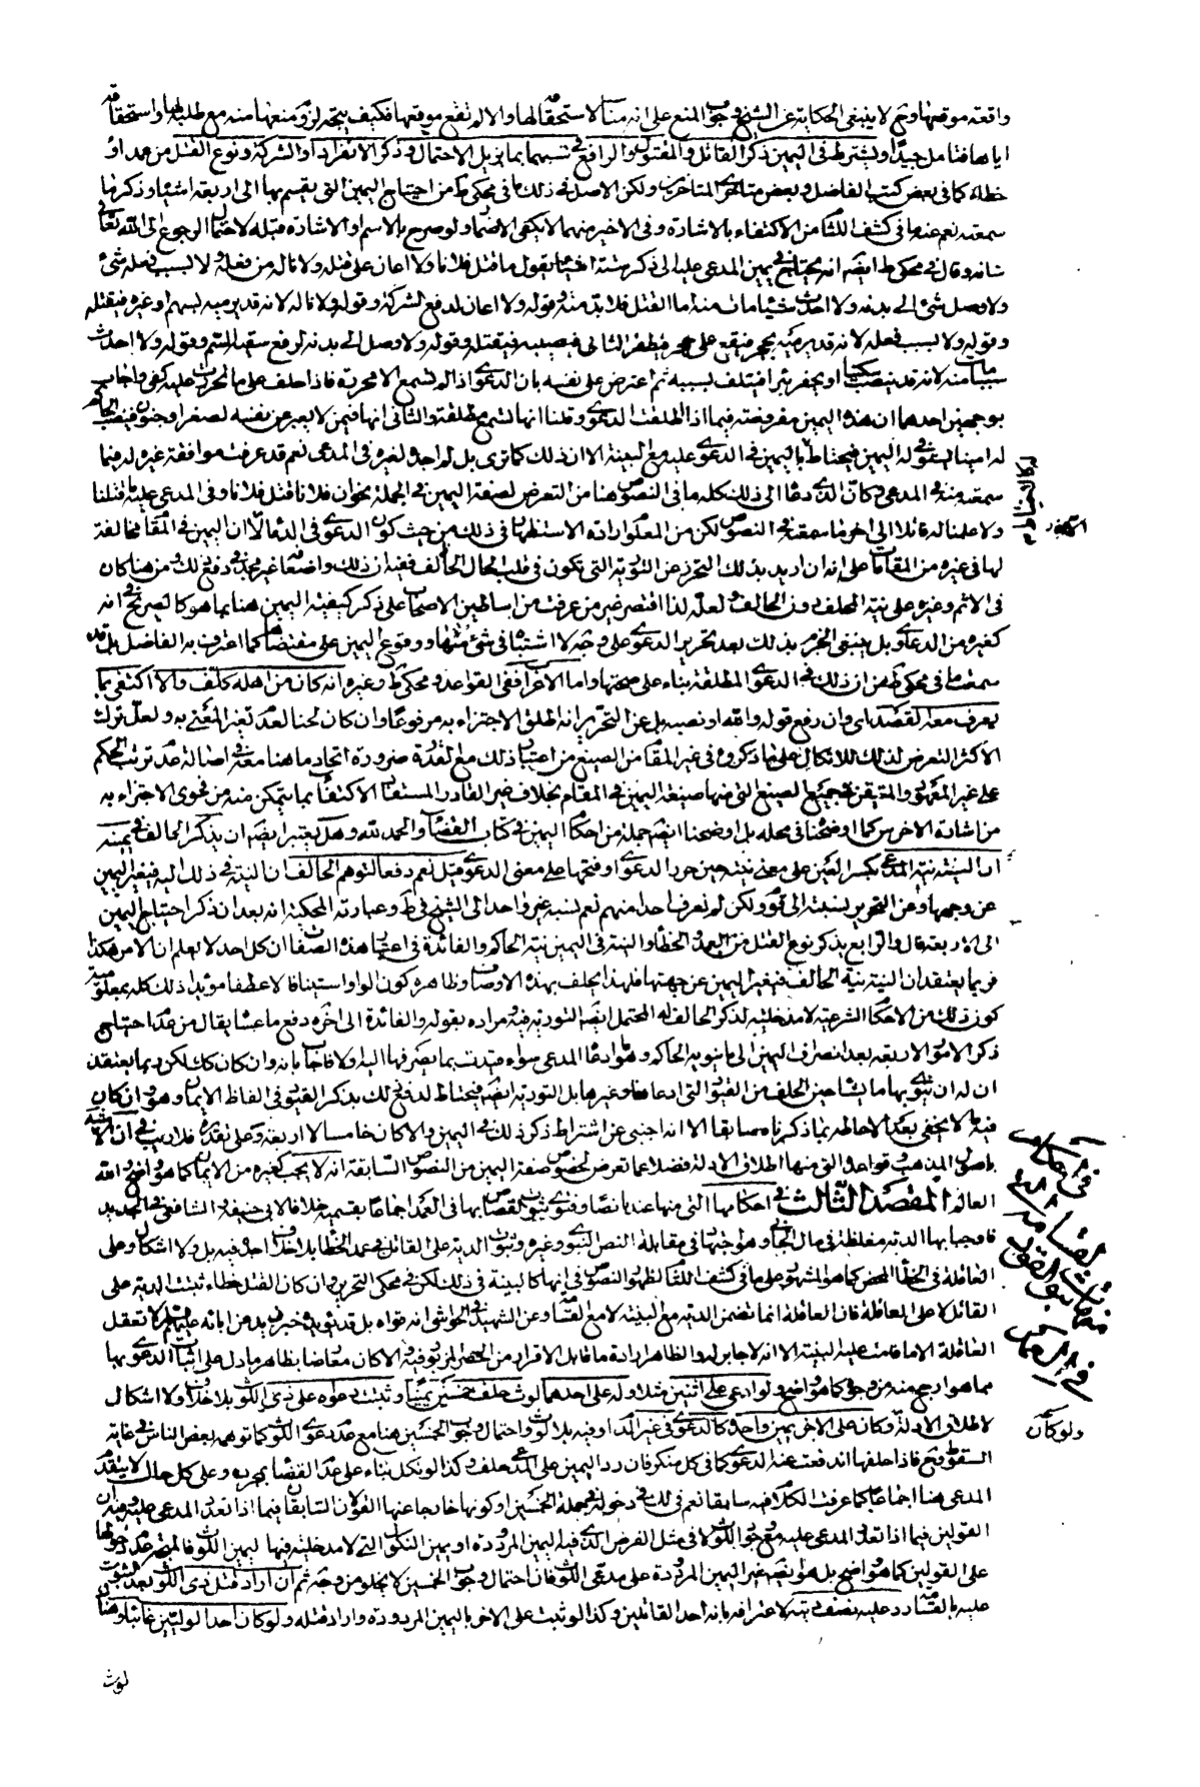 واقعة موقعها وح لا ينبغي الحكاية عن الشيخ وجوب المنع على انه منا لاستحقاقه لها والا لم تقع موقعها فكيف يتجه لزوم منعها منه مع طلبه لها واستحقاقه
اياها فتامل جيدا ويشترط في اليمين ذكر القاتل والمقتول والرافع في نسبهما بما يزيل الاحتمال وذكر الانفراد او الشركة ونوع القتل من عمد او
خطاء كما في بعض كتب الفاضل وبعض متاخرى المتاخرين ولكن الاصل في ذلك ما في محكى ط من احتياج اليمين التي يقسم بها الى اربعة اشياء وذكر ما
سمعته نعم عنه ما في كشف اللثام من الاكتفاء بالاشارة وفي الاخير منهما لا يكفى الاضمار ولو صرح بالاسم او الاشارة قبله لاحتمال الرجوع الى الله تعالى
شانه وقال في محكى ط ايضه انه يحتاج في يمين المدعى عليه الى ذكر ستة اشياء يقول ما قتل فلانا ولا اعان على قتله ولا ناله من فعله ولا لسبب فعله شئ
ولا وصل شئ الى بدنه ولا احدث شيئا مات منه اما القتل فلا بد منه وقوله ولا اعان لدفع الشركة وقوله ولا ناله لانه قد يرميه بسهم او غيره فيقتله
وقوله ولا لسبب فعله لانه قد يرميه بحجر فيقع على حجر فيطفر الثاني فيصيبه فيقتله وقوله ولا وصل الى بدنه لرفع سقيه السم وقوله ولا احدث
سببا مات منه لانه قد ينصب سكينا او يحفر بئرا فيتلف بسببه ثم اعترض على نفسه بان الدعوى اذا لم تسمع الا محررة فاذا حلف على ما تحررت عليه كفى واجاب
بوجهين احدهما ان هذه اليمين مفروضة فيما اذا اطلقت الدعوى وقلنا انها تسمع مطلقة والثاني انها فيمن لا يعبر عن نفسه لصغر او جنون فينصب الحاكم
له امينا ليستوفي له اليمين فيحتاط باليمين في الدعوى عليه ومع البينة الا ان ذلك كما ترى بل لم اجده لغيره في المدعى نعم قد عرفت موافقة غيره له فيما
سمعته منه في المدعى وكان الذي دعا الى ذلك كله ما في النصوص هنا من التعرض لصفة اليمين في الجملة بنحو ان فلانا قتل فلانا وفي المدعى عليه ما قتلنا
ولا علمنا له قاتلا الى اخر ما سمعته في النصوص لكن من المعلوم ارادة الاستظهار في ذلك من حيث كون الدعوى في الدماء والا ان اليمين في المقام مخالفة
لها في غيره من المقامات على انه ان اريد بذلك التحرز عن التورية التي تكون في قلب الحال الحالف ففيه ان ذلك واضعافه غير مجد في دفع ذلك ومن هنا كان
في الاثم وغيره على نية المحلف دون الحالف ولعله لذا اقتصر غير من عرفت من اساطين الاصحاب على ذكر كيفية اليمين هنا بما هو كالصريح في انه
كغيره من الدعاوى بل ينبغي الجزم بذلك بعد تحرير الدعوى على وجه لا اشتباه في شئ منها ووقوع اليمين على مقتضاها كما اعترف به الفاضل بل قد
سمعت ما في محكى ط من ان ذلك في الدعوى المطلقة بناء على صحتها واما الاعراب ففي القواعد ومحكى ط وغيره انه كان من اهله كلف والا اكتفى بما
يعرف معه القصد اى وان رفع قوله والله او نصبه بل عن التحرير انه اطلق الاجتزاء به مرفوعا وان كان لحنا لعدم تغير المعنى به ولعل ترك
الاكثر التعرض لذلك للاتكال على ما ذكروه في غير المقام من الصيغ من اعتبار ذلك مع القدرة ضرورة اتحاد ما هنا معه في اصالة عدم ترتب الحكم
على غير المعهود والمتيقن في جميع الصيغ التي منها صيغة اليمين في المقام بخلاف غير القادر المستفاد الاكتفاء بما يتمكن منه من فحوى الاجتزاء به
من اشارة الاخرس كما اوضحناه في محله بل اوضحنا ايضه جملة من احكام اليمين في كتاب القضاء والحمد لله وهل يعتبر ايضه ان يذكر الحالف في يمينه
ان النية نية المدعى بكسر العين على معنى نيته حين حرر الدعوى او فتحها على معنى الدعوى قيل نعم دفعا لتوهم الحالف ان النية في ذلك اليه فيغير اليمين
عن وجهها وعن التحرير نسبته الى قوم ولكن لم نعرف احدا منهم نعم نسبه غير واحد الى الشيخ في ط وعبارته المحكية انه بعد ان ذكر احتياج اليمين
الى الاربعة قال والرابع يذكر نوع القتل من العمد والخطأ والنية في اليمين نية الحاكم والفائدة في اعتبار هذه الصفات ان كل احد لا يعلم ان الامر هكذا
فربما يعتقد ان النية نية الحالف فيغير اليمين عن جهتها فلهذا يحلف بهذه الاوصاف وظاهره كون الواو استينافا لا عطفا مؤيدا ذلك كله بمعلومية
كون ذلك من الاحكام الشرعية لا مدخلية لذكر الحالف له المحتمل ايضه التورية فيه ومراده بقوله والفائدة الى اخره دفع ما عسا يقال من عدم احتياج
ذكر الامور الاربعة بعد انصراف اليمين الى ما نويه الحاكم وهو ادعا المدعى سواء قيدت بما يصرفها اليه ولا فاجاب بانه وان كان كك لكن ربما يعتقد
ان له ان ينوى بها ما يشا حين الحلف من القيود التي ادعاها وغيرها بل التورية ايضه فيحتاط لدفع ذلك بذكر القيود في الفاظ الايمان وهو وان كان
فيه ما لا يخفى بعد الاحاطة بما ذكرناه سابقا الا انه اجنبي عن اشتراط ذكر ذلك في اليمين والا كان خامسا لا اربعة وعلى تقديره فلا ريب في ان الاشبه
باصول المذهب وقواعده التي منها اطلاق الادلة فضلا عما تعرض لخصوص صفة اليمين من النصوص السابقة انه لا يجب كغيره من الايمان كما هو واضح والله
العالم المقصد الثالث في احكامها التي منها عندنا نصا وفتوى ثبوت القصاص بها في العمد اجماعا بقسميه خلافا لابي حنيفة والشافعي في الجديد
فاوجبا بها الدية مغلظة في مال الجاني وهو اجتهاد في مقابلة النص النبوى وغيره وثبوت الدية على القاتل في عمد الخطأ بلا خلاف اجده فيه بل ولا اشكال وعلى
العاقلة في الخطأ المحض كما هو المشهور على ما في كشف اللثام لظهور النصوص في انها كالبينة في ذلك لكن في محكى التحرير وان كان القتل خطاء ثبتت الدية على
القاتل لا على العاقلة فان العاقلة انما تضمن الدية مع البينة لا مع القسامة وعن الشهيد في الحواشي انه قواه بل قد يؤيده خبر زيد عن ابائه عليهم السلم لا تعقل
العاقلة الا ما قامت عليه البينة الا انه لا جابر له والظاهر ارادة ما قابل الاقرار من الحصر المزبور فيه والا كان معارضا بظاهر ما دل على اثبات الدعوى بها
مما هو ارجح منه من وجوه كما هو واضح ولو ادعى على اثنين مثلا وله على احدهما لوث حلف خمسين يمينا وثبتت دعواه على ذي اللوث بلا خلاف ولا اشكال
لاطلاق الادلة وكان على الاخر يمين واحدة كالدعوى في غير الدم اذ فيه بلا لوث واحتمال وجوب الخمسين هنا مع عدم دعوى اللوث كما توهمه بعض الناس في غاية
السقوط وح فاذا حلفها اندفعت عنه الدعوى كما في كل منكر فان رد اليمين على المدعى حلف وكذا لو نكل بناء على عدم القضاء بمجرده وعلى كل حال لا يتقدم
المدعى هنا اجماعا كما عرفت الكلام فيه سابقا نعم في ذلك في دخوله في جملة الخمسين او كونها خارجا عنها القولان السابقان فيما اذا تعدد المدعى عليه وان
القولين فيما اذا تعدد المدعى عليه مع ثبوت اللوث لا في مثل الفرض الذي فيه اليمين المردودة او يمين النكول التي لا مدخلية فيها ليمين اللوث فالمتجه عدم دخولها
على القولين كما هو واضح بل هو ايضه غير اليمين المردودة على مدعى اللوث فان احتمال وجوب الخمسين لا يخلو من وجه ثم ان اراد قتل ذي اللوث بعد الثبوت
عليه بالقسامة رد عليه نصف ديته لاعترافه بانه احد القاتلين وكذا لو ثبت على الاخر باليمين المردودة واراد قتله ولو كان احد الوليين غائبا وهناك
لوث
في احكام القسامة
ولو كان